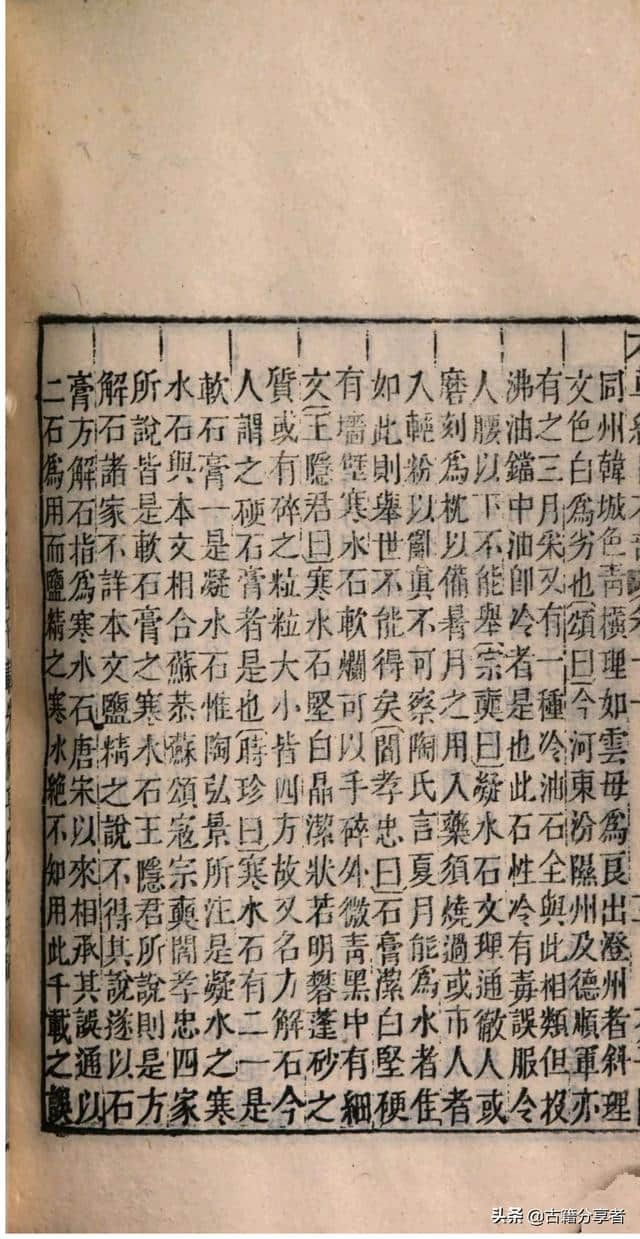 同州韓城色青橫理如雲母為良出澄州者斜理
文色白為劣也頌曰今河東汾隰州及德順軍亦
有之三月采又有一種冷油石全與此相類但投
沸油鐺中油即冷者是也此石性冷有毒誤服令
人腰以下不能舉宗奭曰凝水石文理通徹人或
磨刻為枕以備暑月之用入藥須燒過或市人者
入輕粉以亂真不可察陶氏言夏月能為水者佳
如此則舉世不能得矣閻孝忠曰石膏潔白堅硬
有墻壁寒水石軟爛可以手碎外微青黑中有細
文王隱君曰寒水石堅白晶潔狀若明礬蓬砂之
質或有碎之粒粒大小皆四方故又名方解石今
人謂之硬石膏者是也時珍曰寒水石有二一是
軟石膏一是凝水石惟陶弘景所注是凝水之寒
水石與本文相合蘇恭蘇頌寇宗奭閻孝忠四家
所說皆是軟石膏之寒水石王隱君所說則是方
解石諸家不詳本文鹽精之說不得其說遂以石
膏方解石指為寒水石唐宋以來相承其誤通以
二石為用而鹽精之寒水絕不知用此千載之誤
头条 @古籍分享者